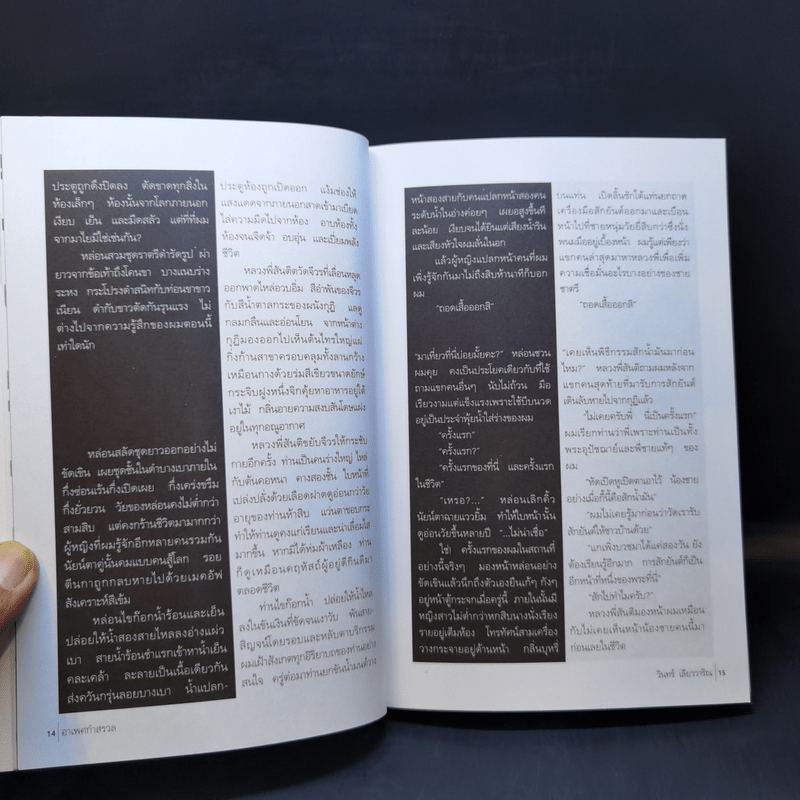 ประตูถูกดึงปิดลง ตัดขาดทุกสิ่งใน
ห้องเล็กๆ ห้องนั้นจากโลกภายนอก
เงียบ เย็น และมืดสลัว แต่ที่ที่ผม
จากมาไยมิใช่เช่นกัน?
หล่อนสวมชุดราตรีดำรัดรูป ผ่า
ยาวจากข้อเท้าถึงโคนขา บางแนบร่าง
ระหง กระโปรงดำสนิทกับท่อนขาขาว
เนียน ดำกับขาวตัดกันรุนแรง ไม่
ต่างไปจากความรู้สึกของผมตอนนี้
เท่าใดนัก
หล่อนสลัดชุดยาวออกอย่างไม่
ขัดเขิน เผยชุดชั้นในดำบางเบาภายใน
กึ่งซ่อนเร้นกึ่งเปิดเผย กึ่งเคร่งขรึม
กึ่งยั่วยวน วัยของหล่อนคงไม่ต่ำกว่า
สามสิบ แต่คงกร้านชีวิตมามากกว่า
ผู้หญิงที่ผมรู้จักอีกหลายคนรวมกัน
นัยน์ตาคู่นั้นคมแบบคนสู้โลก รอย
ตีนกาถูกกลบหายไปด้วยเมคอัฟ
สังเคราะห์สีเข้ม
หล่อนไขก๊อกน้ำร้อนและเย็น
ปล่อยให้น้ำสองสายไหลลงอ่างแผ่ว
เบา สายน้ำร้อนชำแรกเข้าหาน้ำเย็น
คละเคล้า ละลายเป็นเนื้อเดียวกัน
ส่งควันกรุ่นลอยบางเบา น้ำแปลก-
ประตูห้องถูกเปิดออก แง้มช่องให้
แสงแดดจากภายนอกสาดเข้ามาเบียด
ไล่ความมืดไปจากห้อง อาบห้องทั้ง
ห้องจนเจิดจ้า อบอุ่น และเปี่ยมพลัง
ชีวิต
หลวงพี่สันติตวัดจีวรที่เลื่อนหลุด
ออกพาดไหล่อวบอิ่ม สีอำพันของจีวร
กับสีน้ำตาลกระของผนังกุฏิ แลดู
กลมกลืนและอ่อนโยน จากหน้าต่าง
กุฏิมองออกไปเห็นต้นไทรใหญ่แผ่
กิ่งก้านสาขาครอบคลุมทั้งลานกว้าง
เหมือนกางด้วยร่มสีเขียวขนาดยักษ์
กระจิบฝูงหนึ่งจิกคุ้ยหาอาหารอยู่ใต้
เงาไม้ กลิ่นอายความสงบสันโดษแฝง
อยู่ในทุกอณูอากาศ
หลวงพี่สันติขยับจีวรให้กระชับ
กายอีกครั้ง ท่านเป็นคนร่างใหญ่ ไหล่
กับต้นคอหนา คางสองชั้น ใบหน้าที่
เปล่งปลั่งด้วยเลือดฝาดดูอ่อนกว่าวัย
อายุของท่านห้าสิบ แว่นตาขอบกระ
ทำให้ท่านดูคงแก่เรียนและน่าเลื่อมใส
มากขึ้น หากมิได้ห่มผ้าเหลือง ท่าน
ก็ดูเหมือนคฤหัสถ์ผู้อยู่ดีกินดีมา
ตลอดชีวิต
ท่านไขก๊อกน้ำ ปล่อยให้น้ำไหล
ลงในขันเงินที่ขัดจนเงาวับ พันสาย
สิญจน์โดยรอบและหลับตาบริกรรม
ผมเฝ้าสังเกตทุกอิริยาบถของท่านอย่าง
สนใจ ครู่ต่อมาท่านยกขันน้ำมนต์วาง
14 อาเพศกำสรวล
หน้าสองสายกับคนแปลกหน้าสองคน
ระดับน้ำในอ่างค่อยๆ เผยอสูงขึ้นที
ละน้อย เงียบจนได้ยินแต่เสียงน้ำริน
และเสียงหัวใจผมเต้นนอก
แล้วผู้หญิงแปลกหน้าคนที่ผม
เพิ่งรู้จักกันมาไม่ถึงสิบห้านาทีก็บอก
ผม
“ถอดเสื้อออกสิ”
“มาเที่ยวที่นี่บ่อยมั้ยคะ?” หล่อนชวน
ผมคุย คงเป็นประโยคเดียวกับที่ใช้
ถามแขกคนอื่นๆ นับไม่ถ้วน มือ
เรียวงามแต่แข็งแรงเพราะใช้บีบนวด
อยู่เป็นประจำพุ้ยน้ำใส่ร่างของผม
“ครั้งแรก”
“ครั้งแรก?”
“ครั้งแรกของที่นี่ และครั้งแรก
ในชีวิต”
“เหรอ?...” หล่อนเลิกคิ้ว
นัยน์ตาฉายแววยิ้ม ทำให้ใบหน้านั้น
ดูอ่อนวัยขึ้นหลายปี “...ไม่น่าเชื่อ”
ใช่ ครั้งแรกของผมในสถานที่
อย่างนี้จริงๆ มองหน้าหล่อนอย่าง
ขัดเขินแล้วนึกถึงตัวเองยืนแก้ๆ กังๆ
อยู่หน้าตู้กระจกเมื่อครู่นี้ ภายในนั้นมี
หญิงสาวไม่ต่ำกว่าหกสิบนางนั่งเรียง
รายอยู่เต็มห้อง โทรทัศน์สามเครื่อง
วางกระจายอยู่ด้านหน้า กลิ่นบุหรี่
บนแท่น เปิดลิ้นชักใต้แท่นยกถาด
เครื่องมือสักยันต์ออกมาและเบือน
หน้าไปที่ชายหนุ่มวัยยี่สิบกว่าซึ่งนั่ง
พนมมืออยู่เบื้องหน้า ผมรู้แต่เพียงว่า
แขกคนล่าสุดมาหาหลวงพี่เพื่อเพิ่ม
ความเชื่อมั่นอะไรบางอย่างของชาย
ชาตรี
“ถอดเสื้อออกสิ”
“เคยเห็นพิธีกรรมสักน้ำมันมาก่อน
ไหม?” หลวงพี่สันติถามผมหลังจาก
แขกคนสุดท้ายที่มารับการสักยันต์
เดินลับหายไปจากกุฏิแล้ว
“ไม่เคยครับพี่ นี่เป็นครั้งแรก”
ผมเรียกท่านว่าพี่เพราะท่านเป็นทั้ง
พระอุปัชฌาย์และพี่ชายแท้ๆ ของ
ผม
“หัดเปิดหูเปิดตาเอาไว้ น้องชาย
อย่างเมื่อกี้นี้คือสักน้ำมัน”
“ผมไม่เคยรู้มาก่อนว่าวัดเรารับ
สักยันต์ให้ชาวบ้านด้วย”
“แกเพิ่งบวชมาได้แค่สองวัน ยัง
ต้องเรียนรู้อีกมาก การสักยันต์ก็เป็น
อีกหน้าที่หนึ่งของพระที่นี่”
“สักไปทำไมครับ?”
หลวงพี่สันติมองหน้าผมเหมือน
กับไม่เคยเห็นหน้าน้องชายคนนี้มา
ก่อนเลยในชีวิต
วินทร์ เลียววาริณ 15